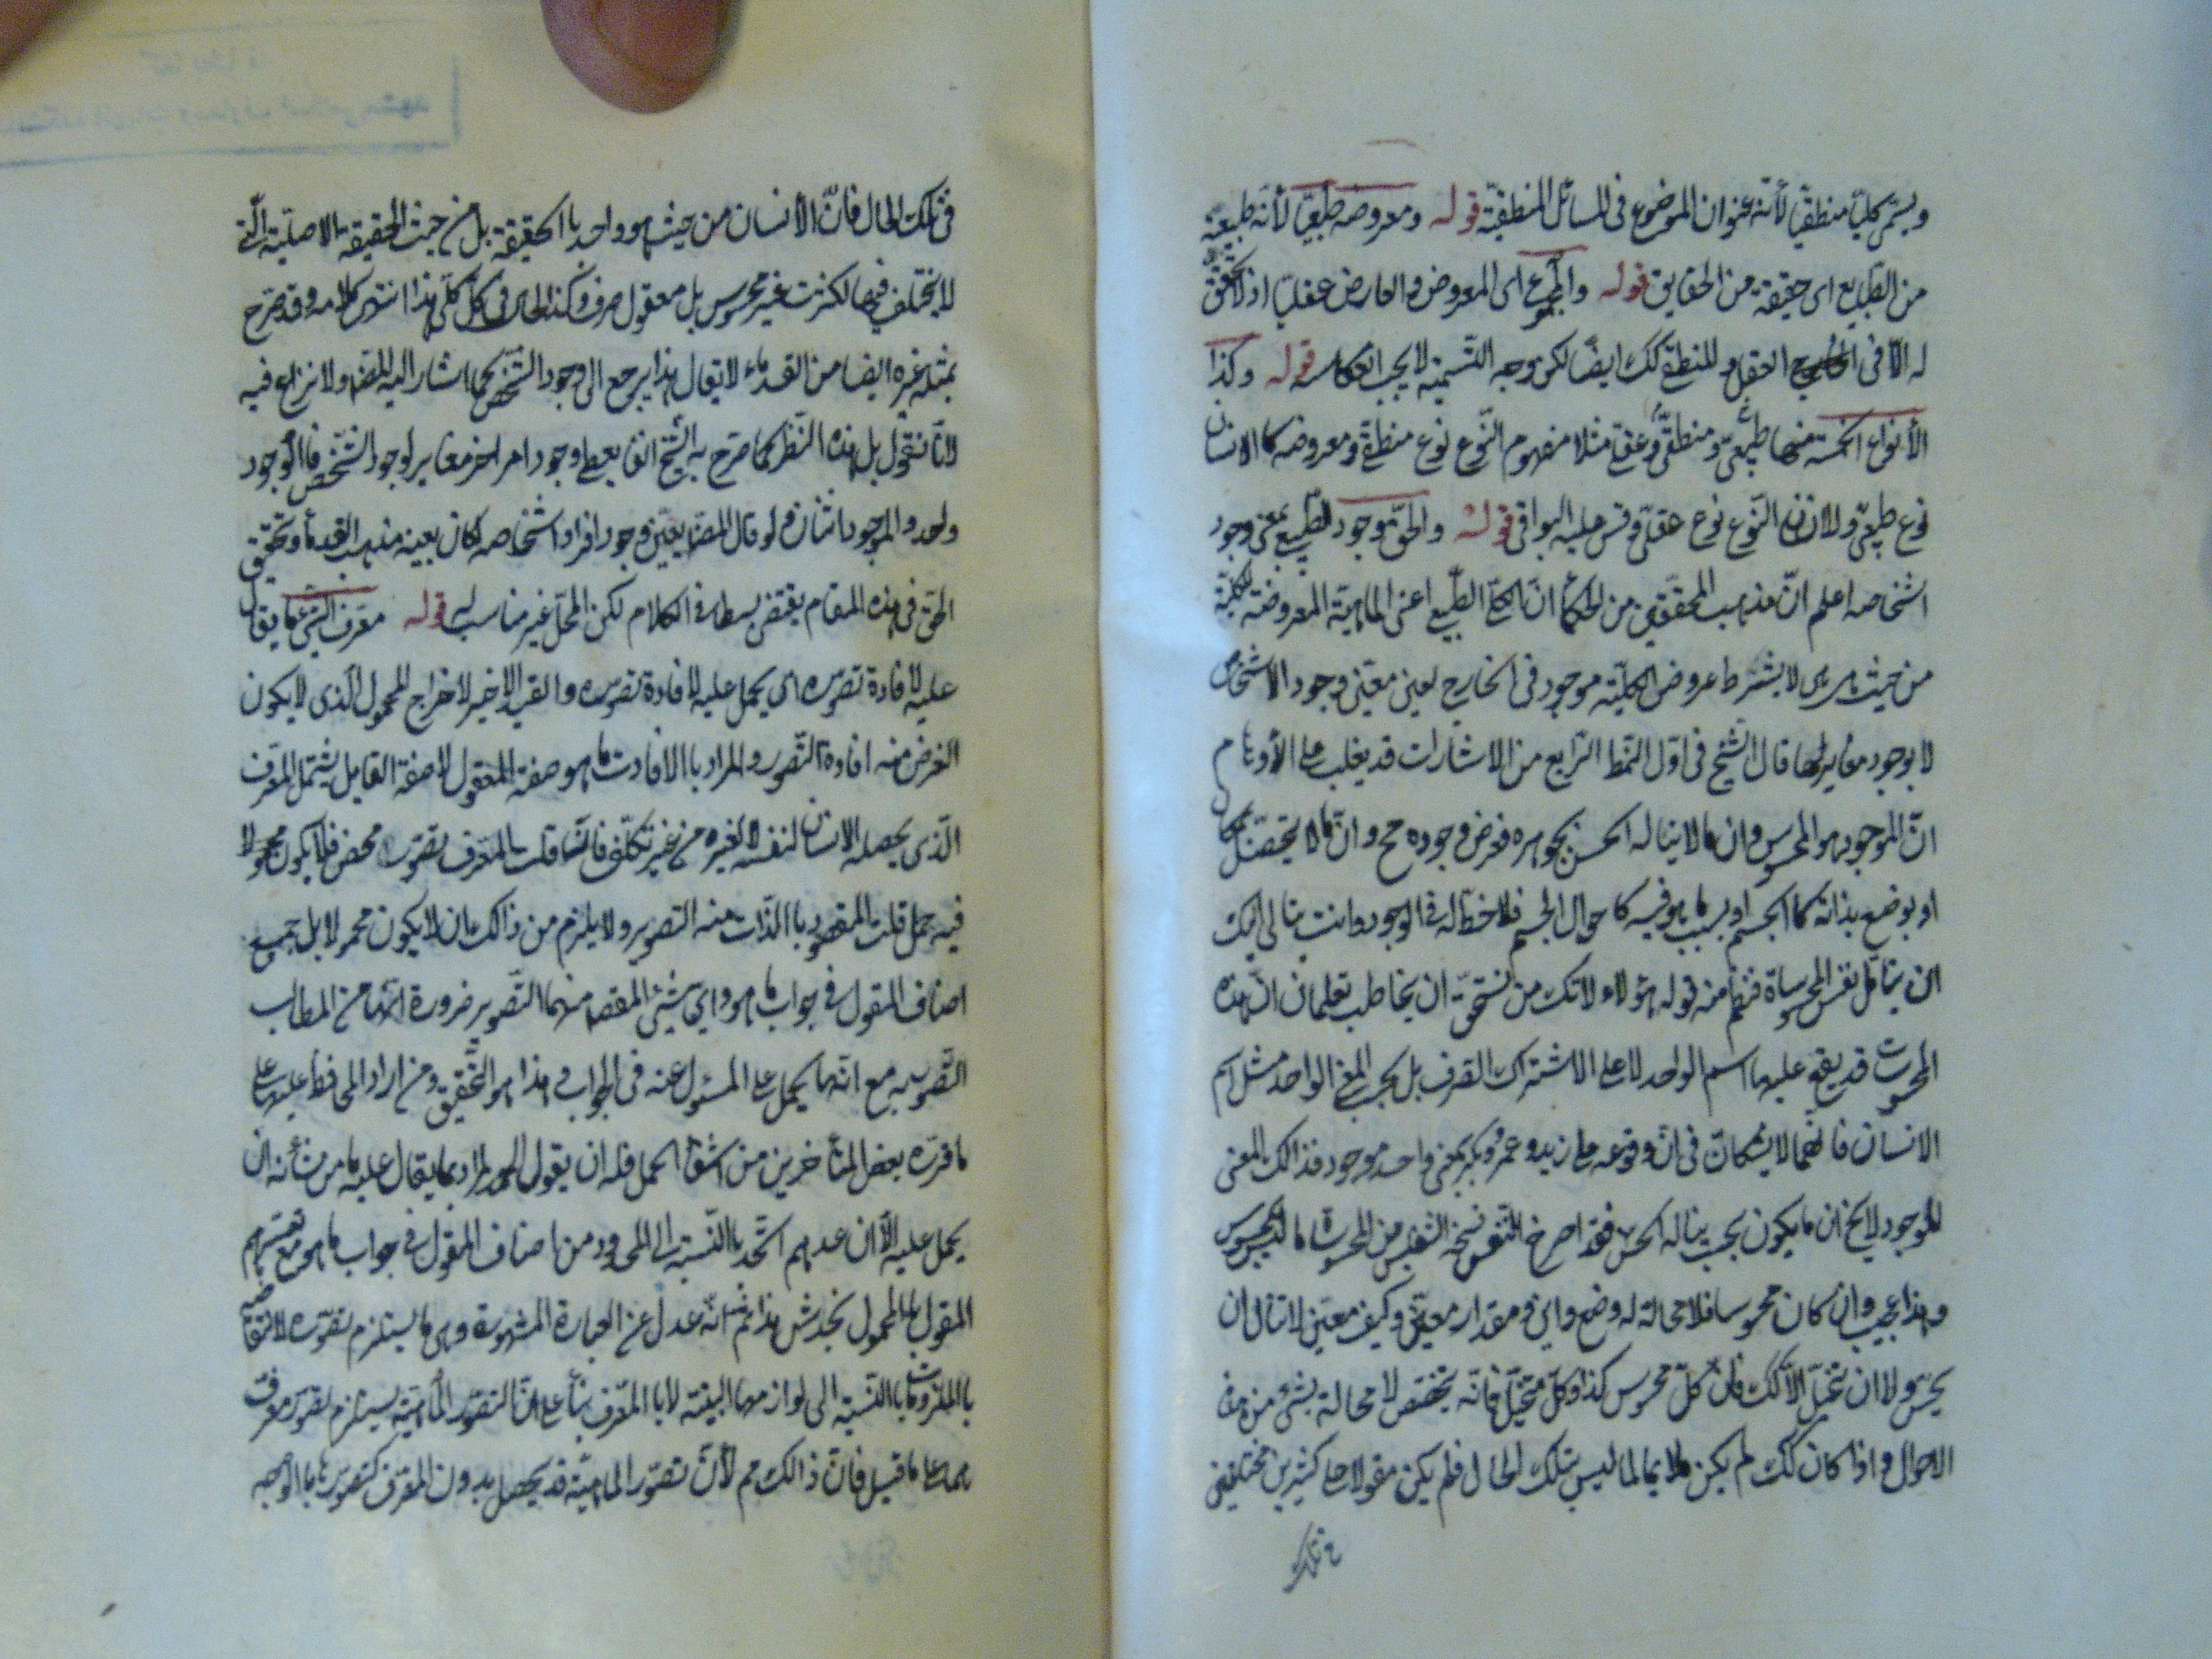 ويسمى كليا منطقيا لأنه عنوان الموضوع فى المسائل المنطقية قوله ومعروضه طبيعيا لأنه طبيعة
من الطبايع اى حقيقة من الحقايق قوله والمجموع اى المعروض والعارض عقليا اذ لا تحقق
له الا فى العقل وللمنطقى كك ايضا لكن وجه التسمية لا يجب انعكاسه قوله وكذا
الأنواع الخمسة منها طبيعى ومنطقى وعقلى مثلا مفهوم النوع نوع منطقى ومعروضه كالانسان
نوع طبيعى والانسان النوع نوع عقلى وقس عليه البواقى قوله والحق وجود الطبيعى بمعنى وجود
اشخاصه اعلم ان مذهب المحققين من الحكماء ان الكلى الطبيعى اعنى الماهية المعروضة للكلية
من حيث هى هى لا بشرط عروض الكلية موجود فى الخارج بعين وجود الاشخاص
لا بوجود مغاير لها قال الشيخ فى اول النمط الرابع من الاشارات قد يغلب على الأوهام
ان الموجود هو المحسوس وان ما لا يناله الحس بجوهره ففرض وجوده مح وان ما لا يتخصص بمكان
او بوضع بذاته كما الجسم او بسبب ما هو فيه كاحوال الجسم فلا حظ له فى الوجود وانت يتأتى لك
ان يتأمل نفس المحسوسات فتعلم منه قول هؤلاء لانك من يستحق ان يخاطب تعلمان ان هذه
المحسوسات قد يقع عليها اسم الواحد لا على الاشتراك الصرف بل بحسب المعنى الواحد مثل اسم
الانسان فانكما لا يشكان فى ان وقوعه على زيد وعمرو وبكر بمعنى واحد موجود فذالك المعنى
الموجود لا يخ ان ما يكون بحيث يناله الحس فقد اخرج التفتيش من المحسوسات ما ليس بمحسوس
وهذا عجيب وان كان محسوسا فلا محالة له وضع واين ومقدار معين وكيف معين لا يتأتى ان
يحس ولا ان يتخيل الا كك فان كل محسوس كذا وكل متخيل فانه يتخصص لا محالة بشئ من هذه
الاحوال واذا كان كك لم يكن ملايما لما ليس بتلك الحال فلم يكن مقولا على كثيرين مختلفين
فى تلك الحال فان الأنسان من حيث هو واحد با الحقيقة بل من حيث الحقيقة الاصلية التى
لا يختلف فيها الكثرت غير محسوس بل معقول صرف وكذا الحال فى كل كلى هذا انتهى كلامه وقد صرح
بمثله غيره ايضا من القدماء لا يقال هذا يرجع الى وجود الشخص كما اشار اليه المصنف ولا نزاع فيه
لانا نقول بل هذه النظر كما صرح به الشيخ انفا يعطى وجود امر اخر مغاير لوجود الشخص فا الوجود
واحد والموجود اثنان ولو قال المصنف بعين وجود افراد اشخاصه لكان بعينه مذهب القدماء وتحقيق
الحق فى هذه المقام يقتضى بسطا فى الكلام لكن المحل غير مناسب له قوله معرف الشئ ما يقال
عليه لافادة تصوره اى يحمل عليه لافادة تصوره والقيد الاخير لاخراج المحمول الذى لا يكون
الغرض منه افادة التصور والمراد با الافادت ما هو صفة المقول لا صفة القايل يشتمل المعرف
الذى يحصله الانسان لنفسه لا لغيره من غير تكلف فان قلت المعرف تصور محض فلا يكون
فيه حمل قلت المقصود با الذات منه التصوير ولا يلزم من ذالك ان لا يكون محمولا بل جميع
اصناف المقول فى جواب ما هو واى شيئ المقصود منهما التصوير ضرورة انهما من المطالب
التصورية مع انهما يحمل على المسئول عنه فى الجواب وهذا هو التحقيق ومن اراد المحافظة عليها على
ما قرره بعض المتأخرين من اشتراط الحمل فله ان يقول المراد بما يقال عليه ما من شأنه ان
يحمل عليه الا ان عدهم الحد با النسبة الى المحدود من اصناف المقول فى جواب ما هو مع تفسيرهم
المقول با المحمول يخدش هذا ثم انه عدل عن العبارة المشهورة وهى ما يستلزم تصوره لانتقاضه
با الملزومات با النسبة الى لوازمها البينة لا با المعرف بناء على ان تصور الماهية يستلزم تصور معرفه
على ما قيل فان ذالك مم لأن تصور الماهية قد يحصل بدون المعرف كتصورها با الوجه